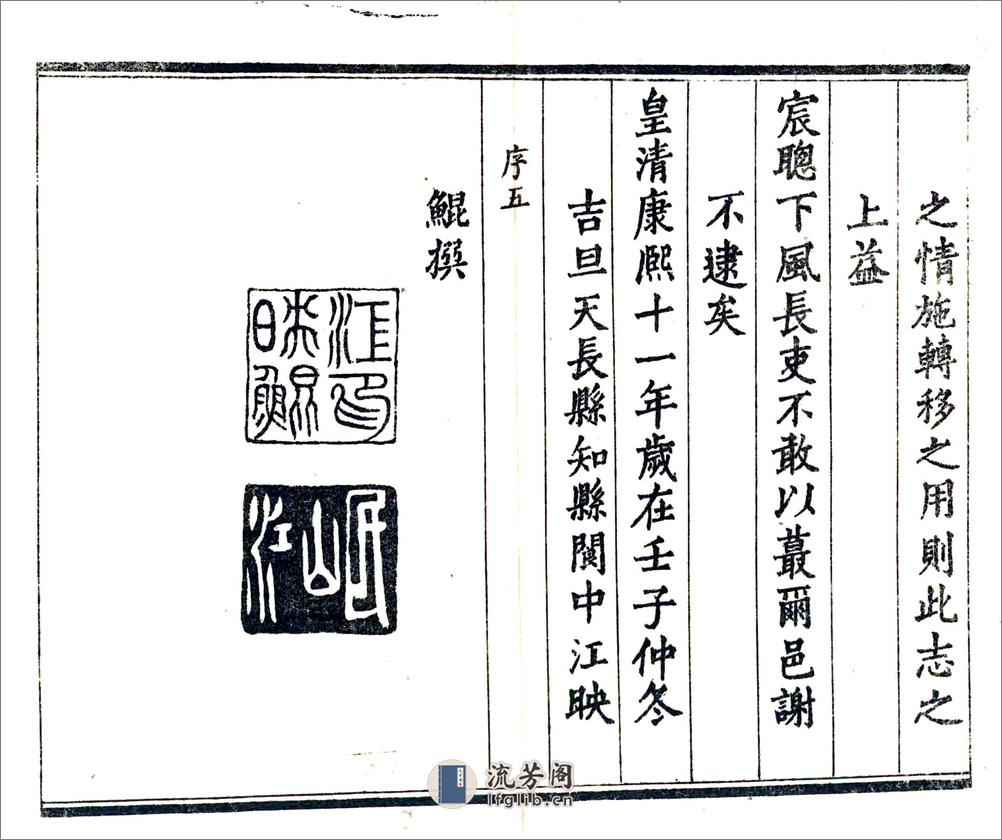 之情施轉移之用則此志之
上益
宸聰下風長吏不敢以蕞爾邑謝
不逮矣
皇清康熙十一年歲在壬子仲冬
吉旦天長縣知縣閬中江映
序五
鯤撰
江印映鯤
岷山江
流芳阁
lfglib.cn